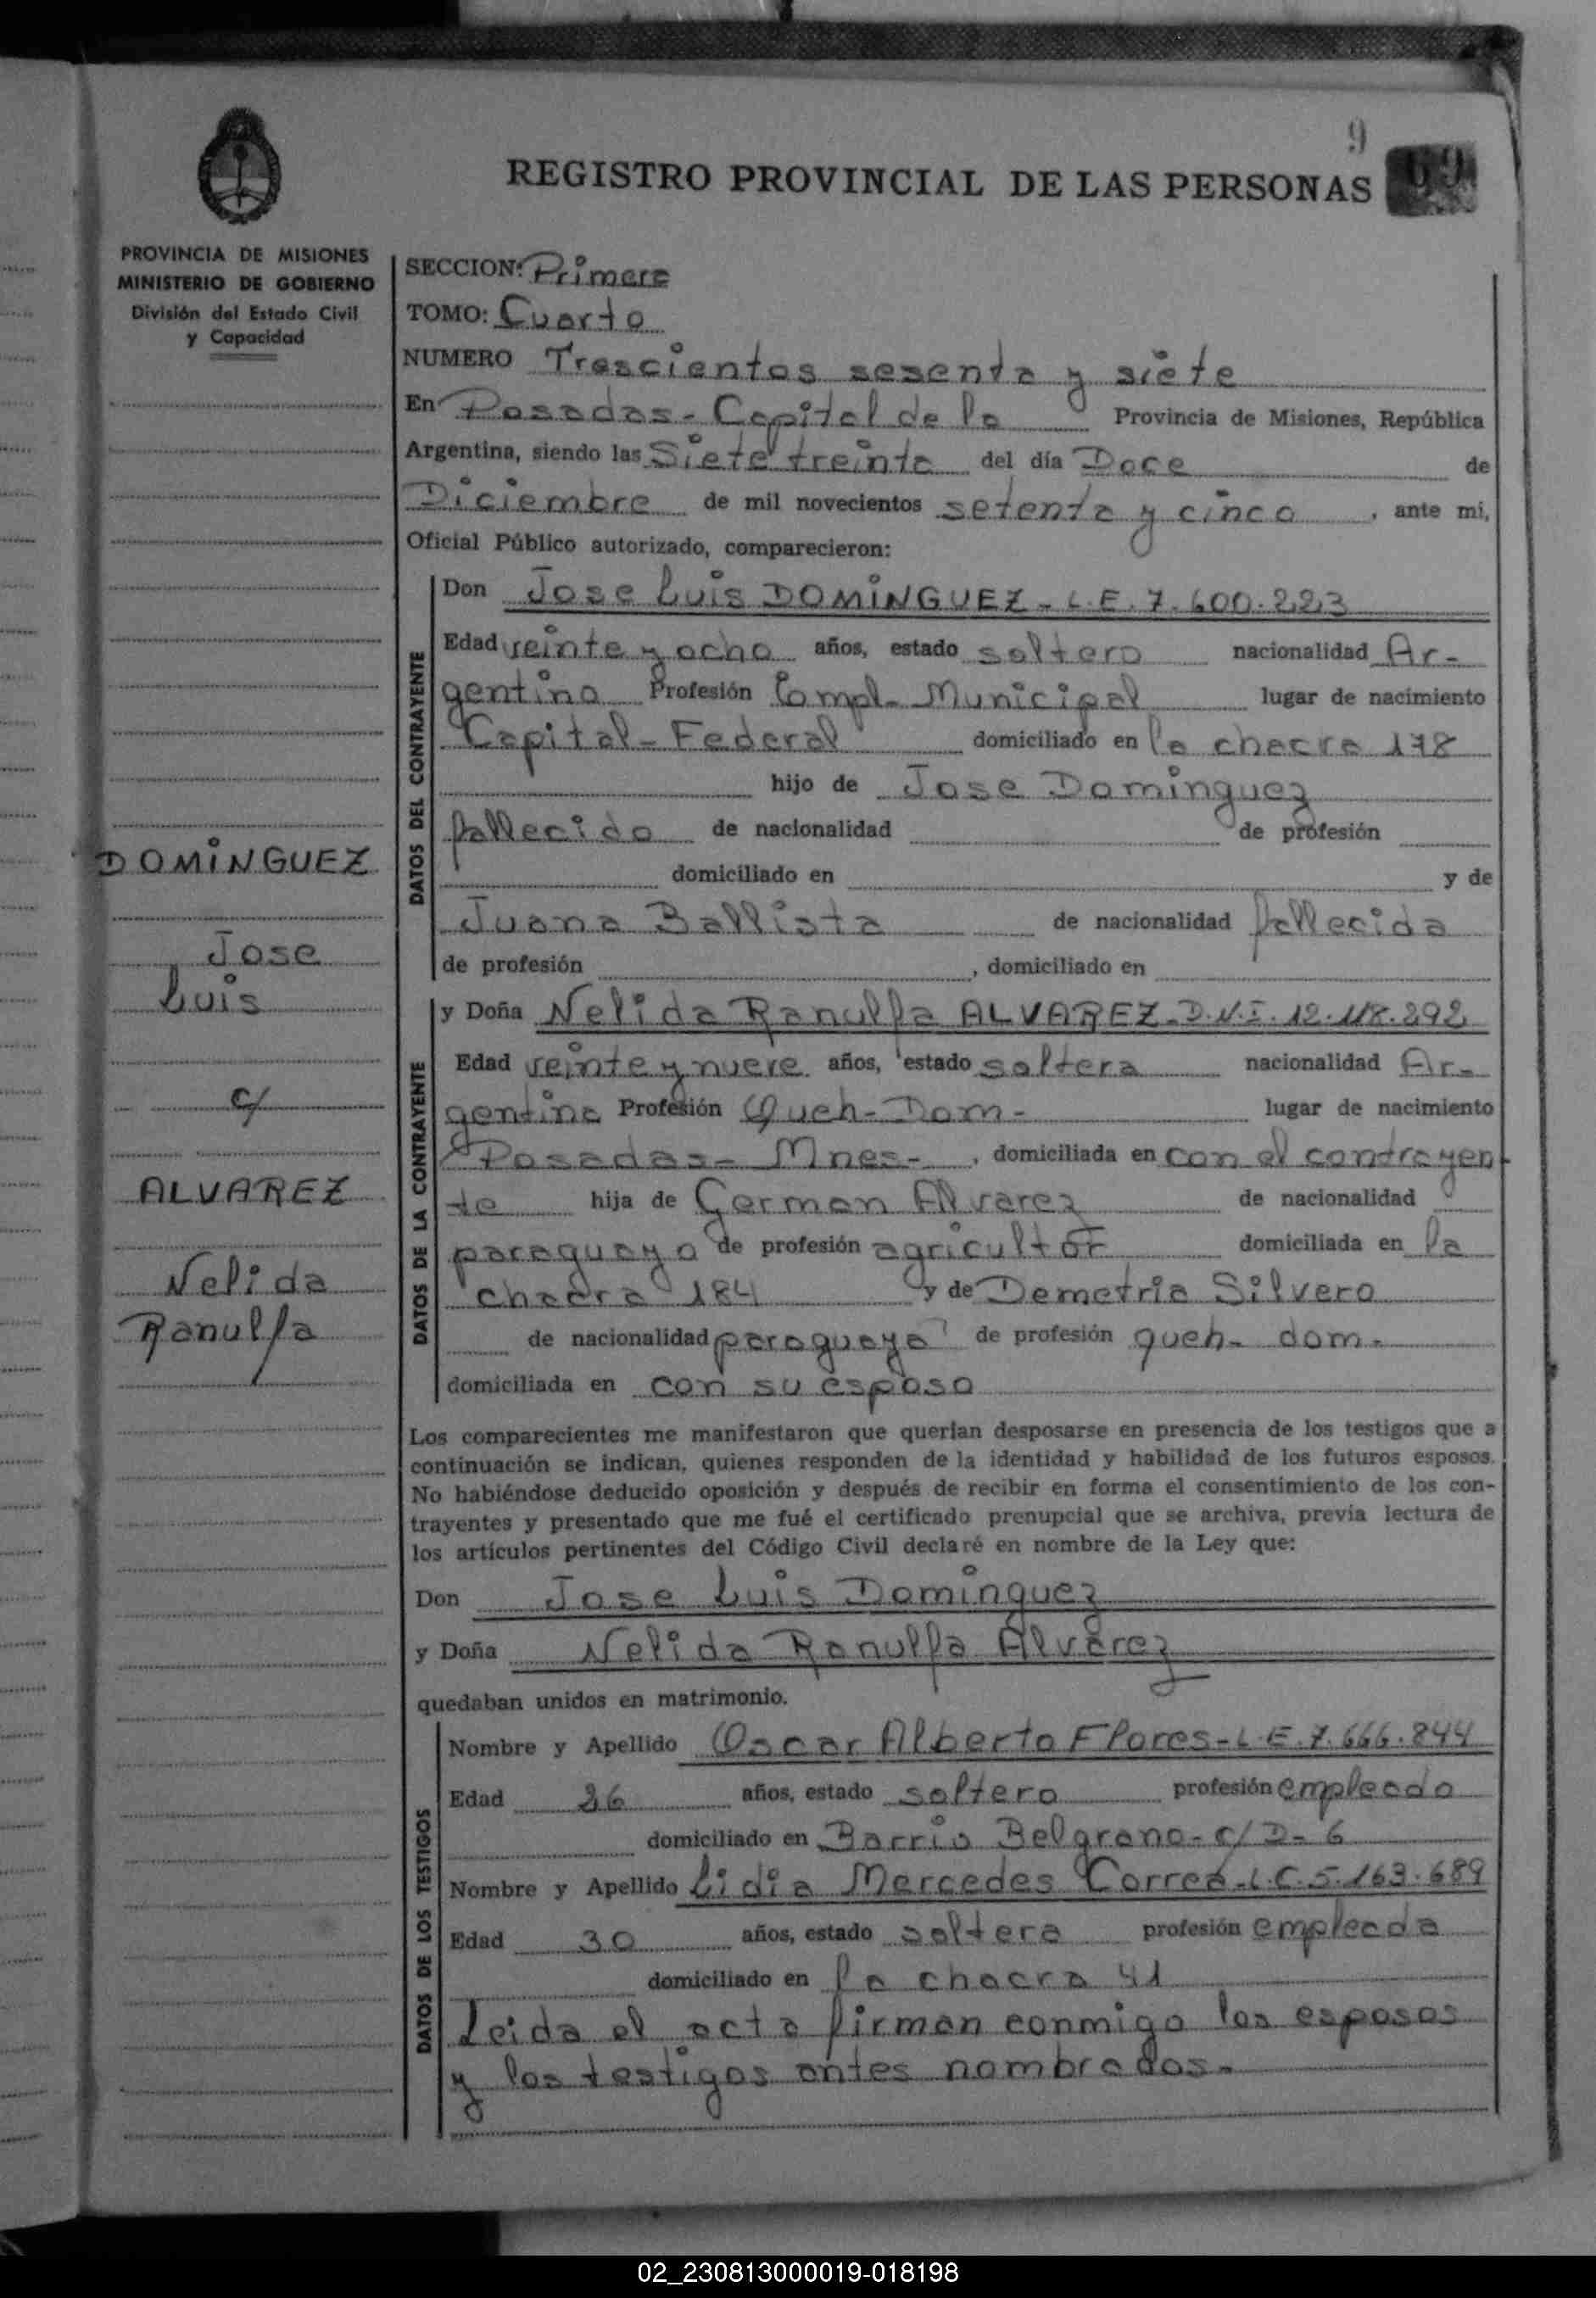 9
REGISTRO PROVINCIAL DE LAS PERSONAS
PROVINCIA DE MISIONES
MINISTERIO DE GOBIERNO
División del Estado Civil
y Capacidad
DOMINGUEZ
Jose
Luis
c/
ALVAREZ
Nelida
Ranulfa
SECCION: Primera
TOMO: Cuarto
NUMERO Trescientos sesenta y siete
En Posadas - Capital de la Provincia de Misiones, República
Argentina, siendo las Siete treinta del día Doce de
Diciembre de mil novecientos setenta y cinco, ante mi,
Oficial Público autorizado, comparecieron:
DATOS DEL CONTRAYENTE
Don Jose Luis DOMINGUEZ - L.E. 7.600.223
Edad veinte y ocho años, estado soltero nacionalidad Ar-
gentino Profesión Empl. Municipal lugar de nacimiento
Capital - Federal domiciliado en la chacra 178
hijo de Jose Dominguez
fallecido de nacionalidad de profesión
domiciliado en y de
Juana Ballista de nacionalidad fallecida
de profesión , domiciliado en
DATOS DE LA CONTRAYENTE
y Doña Nelida Ranulfa ALVAREZ - D.N.I. 12.118.292
Edad veinte y nueve años, estado soltera nacionalidad Ar-
gentina Profesión Queh - Dom - lugar de nacimiento
Posadas - Mnes - , domiciliada en con el contrayen-
te hija de German Alvarez de nacionalidad
paraguayo de profesión agricultor domiciliada en la
chacra 184 y de Demetria Silvero
de nacionalidad paraguaya de profesión queh - dom -
domiciliada en con su esposo
Los comparecientes me manifestaron que querían desposarse en presencia de los testigos que a
continuación se indican, quienes responden de la identidad y habilidad de los futuros esposos.
No habiéndose deducido oposición y después de recibir en forma el consentimiento de los con-
trayentes y presentado que me fué el certificado prenupcial que se archiva, previa lectura de
los artículos pertinentes del Código Civil declaré en nombre de la Ley que:
Don Jose Luis Dominguez
y Doña Nelida Ranulfa Alvarez
quedaban unidos en matrimonio.
DATOS DE LOS TESTIGOS
Nombre y Apellido Oscar Alberto Flores - L.E. 7.666.844
Edad 26 años, estado soltero profesión empleado
domiciliado en Barrio Belgrano - c/ D - 6
Nombre y Apellido Lidia Mercedes Correa - L.C. 5.163.689
Edad 30 años, estado soltera profesión empleada
domiciliado en la chacra 41
Leida el acta firman conmigo los esposos
y los testigos antes nombrados -
02_230813000019-018198